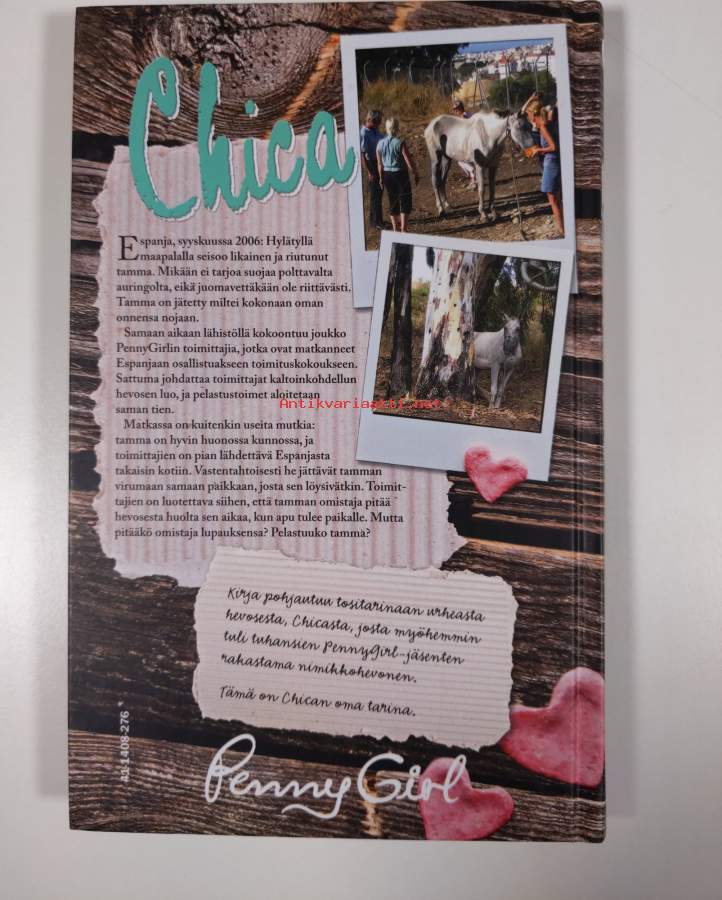 Chica
Espanja, syyskuussa 2006: Hylätyllä
maapalalla seisoo likainen ja riutunut
tamma. Mikään ei tarjoa suojaa polttavalta
auringolta, eikä juomavettäkään ole riittävästi.
Tamma on jätetty miltei kokonaan oman
onnensa nojaan.
Samaan aikaan lähistöllä kokoontuu joukko
PennyGirlin toimittajia, jotka ovat matkanneet
Espanjaan osallistuakseen toimituskokoukseen.
Sattuma johdattaa toimittajat kaltoinkohdellun
hevosen luo, ja pelastustoimet aloitetaan
saman tien.
Antikvariaatti.net
Matkassa on kuitenkin useita mutkia:
tamma on hyvin huonossa kunnossa, ja
toimittajien on pian lähdettävä Espanjasta
takaisin kotiin. Vastentahtoisesti he jättävät tamman
virumaan samaan paikkaan, josta sen löysivätkin. Toimit-
tajien on luotettava siihen, että tamman omistaja pitää
hevosesta huolta sen aikaa, kun apu tulee paikalle. Mutta
pitääkö omistaja lupauksensa? Pelastuuko tamma?
Kirja pohjautuu tositarinaan urheasta
hevosesta, Chicasta, josta myöhemmin
tuli tuhansien PennyGirl-jäsenten
rakastama nimikkohevonen.
Tämä on Chican oma tarina.
41-1408-276
Penny Girl